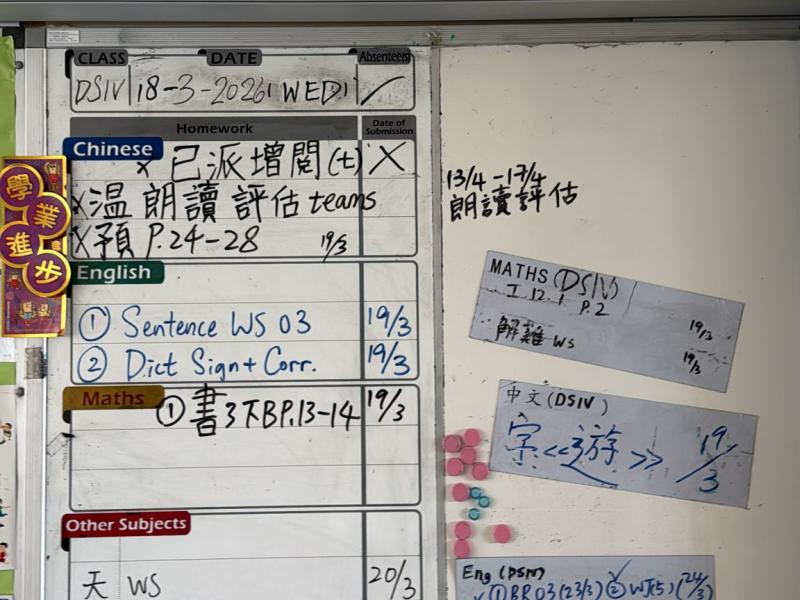 CLASS DATE Absentee(s)
DSIV 18-3-2026 WED ✓
Homework Date of Submission
Chinese
x 已派增閱(七) X
x 温朗讀評估 teams
x 預 P.24-28 19/3
English
① Sentence WS 03 19/3
② Dict Sign + Corr. 19/3
Maths
① 書3下B P.13-14 19/3
Other Subjects
天 WS 20/3
學業進步
13/4 - 17/4
朗讀評估
MATHS (DSIV)
I 12.1 P.2 19/3
解難 WS 19/3
中文 (DSIV)
家<<遊>> 19/3
Eng (DSIV)
✓ ① BR 03 (23/3) ② WJ(5) (24/3)